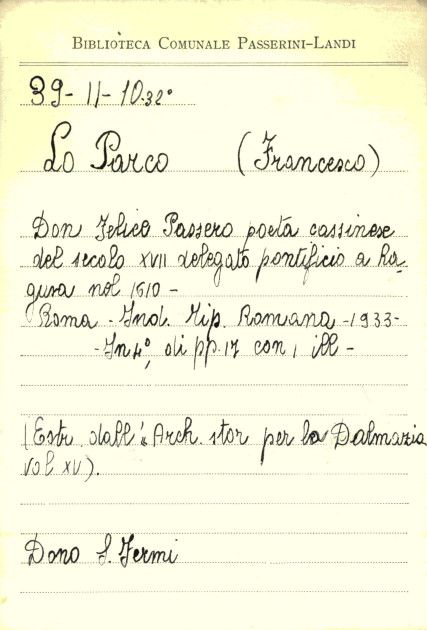 BIBLIOTECA COMUNALE PASSERINI-LANDI
39-11-10.32°
Lo Parco (Francesco)
Don Felice Passero poeta cassinese
del secolo XVII delegato pontificio a Ra-
gusa nel 1610 -
Roma - Ind. Tip. Romana - 1933 -
- In 4°, di pp. 17 con 1 ill -
(Estr. dall'« Arch. stor per la Dalmazia
vol XV).
Dono S. Fermi